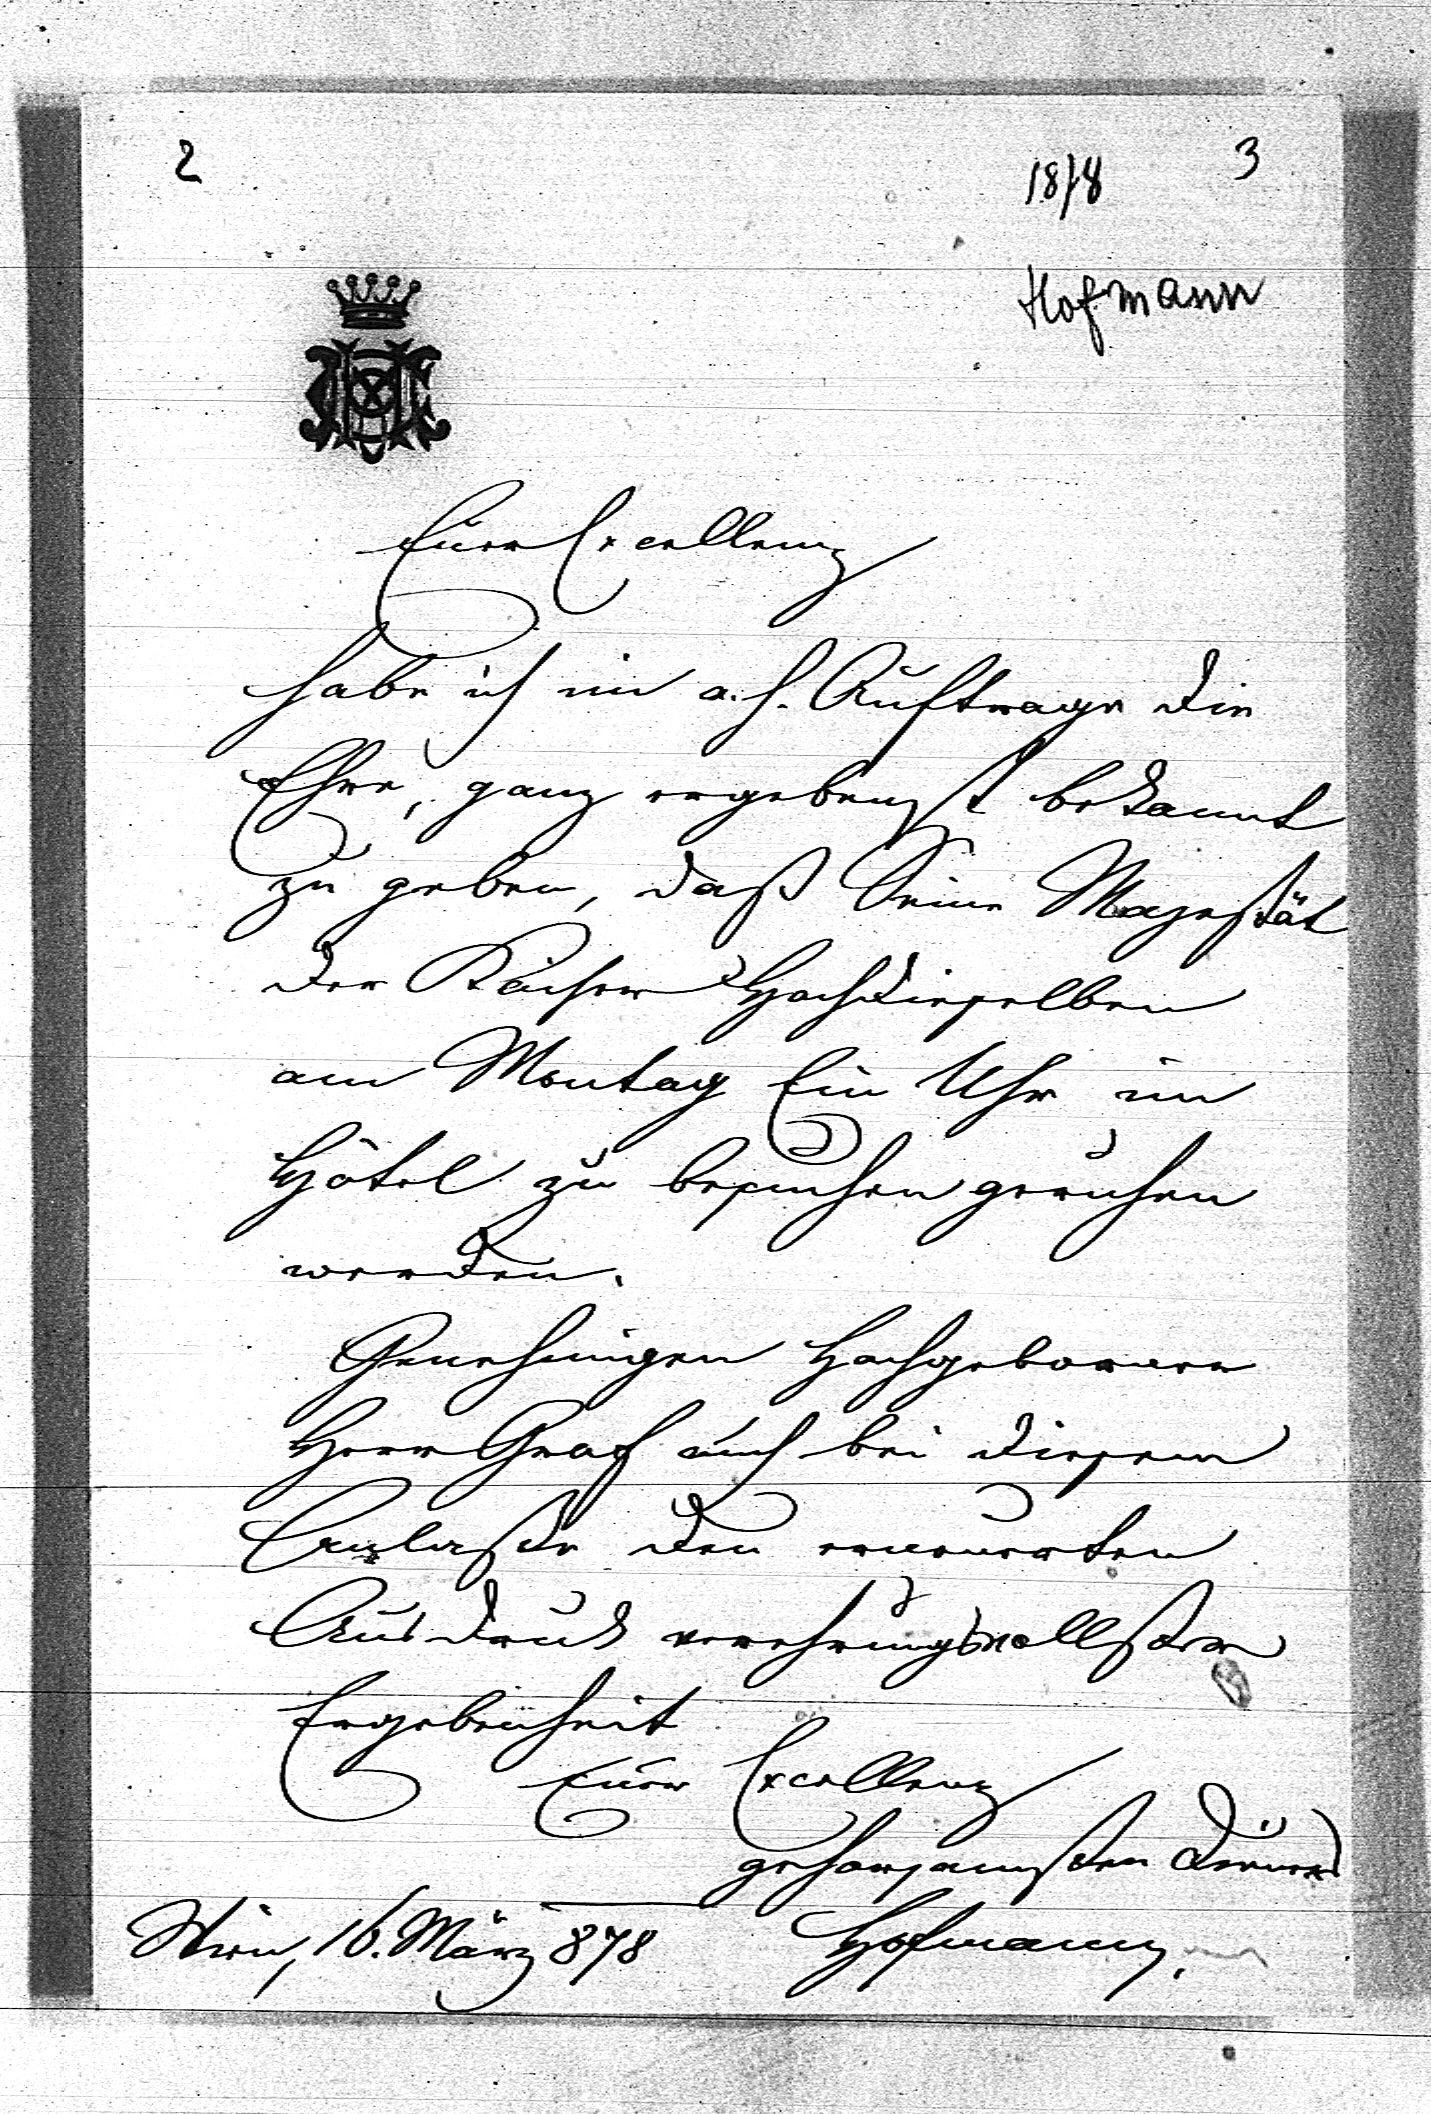 2
1878
3
Hofmann
Euer Excellenz
habe ich im a. h. Auftrage die
Ehre, ganz ergebenst bekannt
zu geben, daß Seine Majestät
der Kaiser Hochdieselben
am Montag Ein Uhr im
Hôtel zu besuchen geruhen
werden.
Genehmigen Hochgeborener
Herr Graf auch bei diesem
Anlaße den erneuerten
Ausdruck verehrungsvollster
Ergebenheit
Euer Excellenz
gehorsamsten Diener
Wien, 16. März 878
Hofmann.